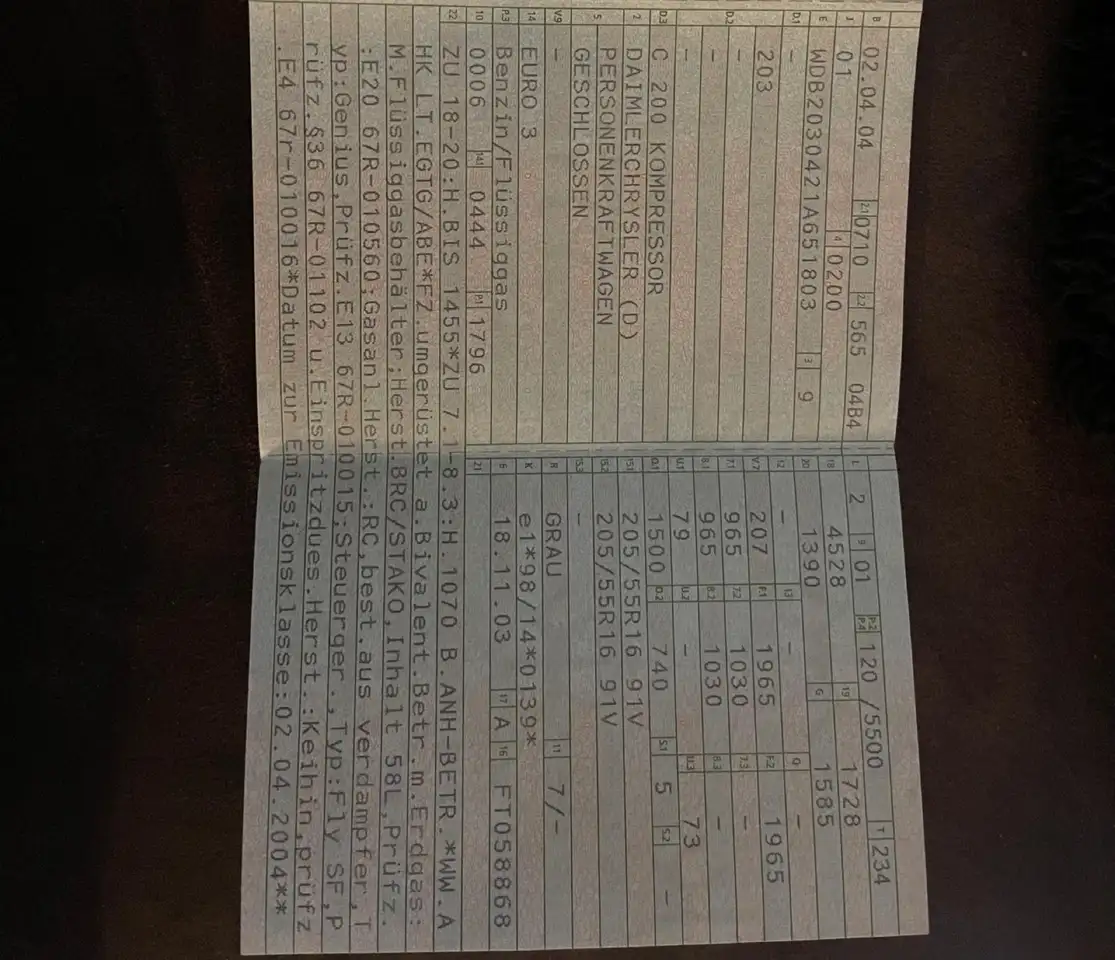 B 02.04.04 2.1 0710 2.2 565 04B4
J 01 4 0200
E WDB2030421A651803 3 9
D.1 -
D.2 203
-
-
-
D.3 C 200 KOMPRESSOR
2 DAIMLERCHRYSLER (D)
5 PERSONENKRAFTWAGEN
GESCHLOSSEN
V.9 -
14 EURO 3
P.3 Benzin/Flüssiggas
10 0006 14.1 0444 P.1 1796
L 2 9 01 P.2 P.4 120 /5500 T 234
18 4528 19 1728
20 1390 G 1585
12 - 13 - Q -
V.7 207 F.1 1965 F.2 1965
7.1 965 7.2 1030 7.3 -
8.1 965 8.2 1030 8.3 -
U.1 79 U.2 - U.3 73
O.1 1500 O.2 740 S.1 5 S.2 -
15.1 205/55R16 91V
15.2 205/55R16 91V
15.3 -
R GRAU 11 7/-
K e1*98/14*0139*
6 18.11.03 17 A 16 FT058868
21
22 ZU 18-20:H.BIS 1455*ZU 7.1-8.3:H.1070 B.ANH-BETR.*WW.A
HK LT.EGTG/ABE*FZ.umgerüstet a.Bivalent.Betr.m.Erdgas:
M.Flüssiggasbehälter:Herst.BRC/STAKO,Inhalt 58L,Prüfz.
:E20 67R-010560;Gasanl.Herst.:RC,best.aus verdampfer,T
yp:Genius,Prüfz.E13 67R-010015;Steuerger.,Typ:Fly SF,P
rüfz.§36 67R-01102 u.Einspritzdues.Herst.:Keihin,prüfz
.E4 67r-010016*Datum zur Emissionsklasse:02.04.2004**